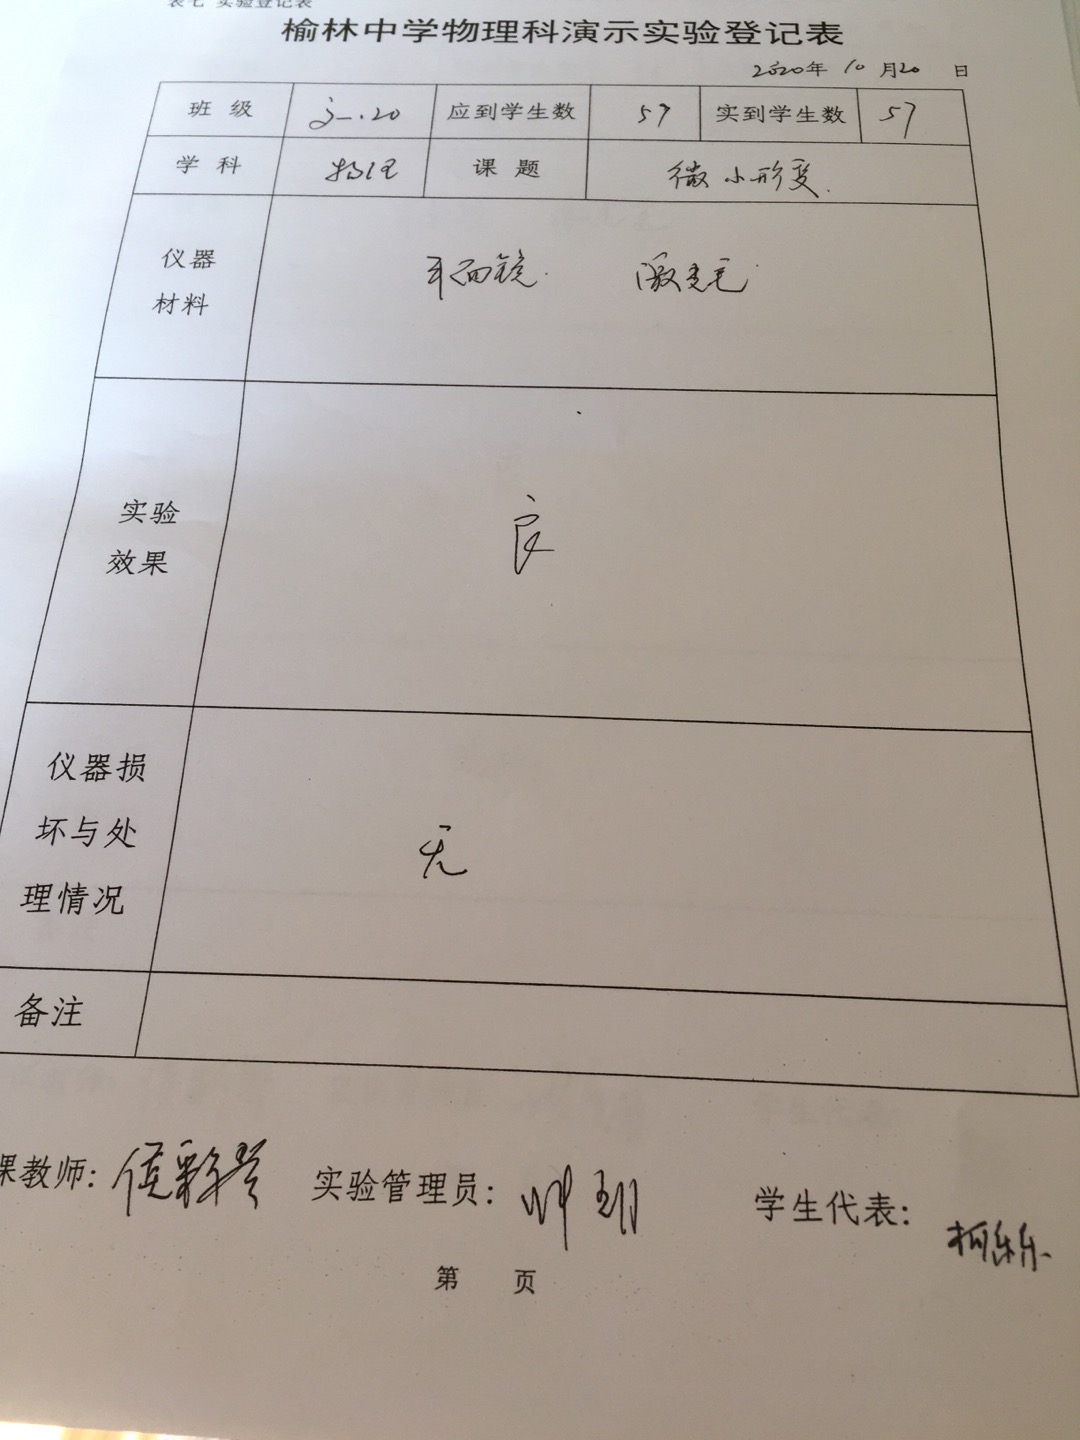 表七 实验登记表
榆林中学物理科演示实验登记表
2020年 10 月20 日
班 级 高一.20 应到学生数 57 实到学生数 57
学 科 物理 课 题 微小形变.
仪器
材料
平面镜. 激光笔.
实验
效果
良
仪器损
坏与处
理情况
无
备注
课教师: 实验管理员: 学生代表:
第 页